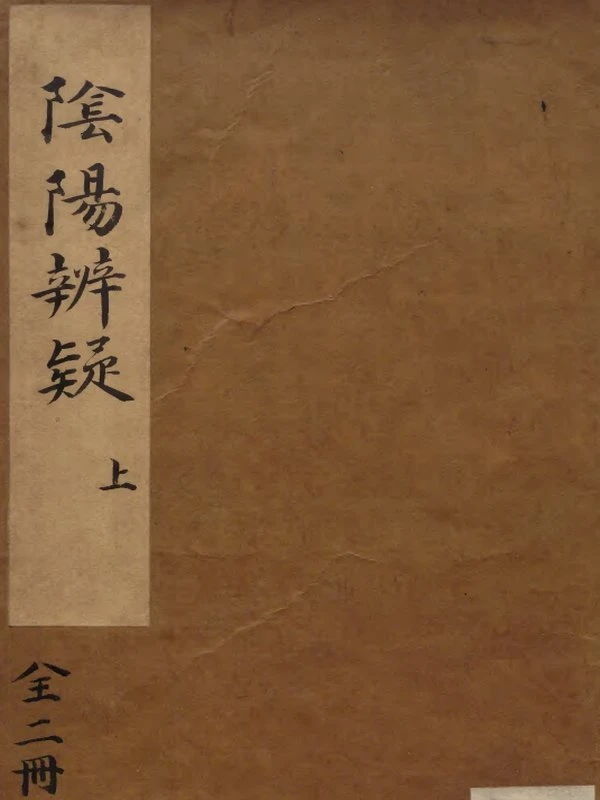 陰陽辨疑
上
全二冊